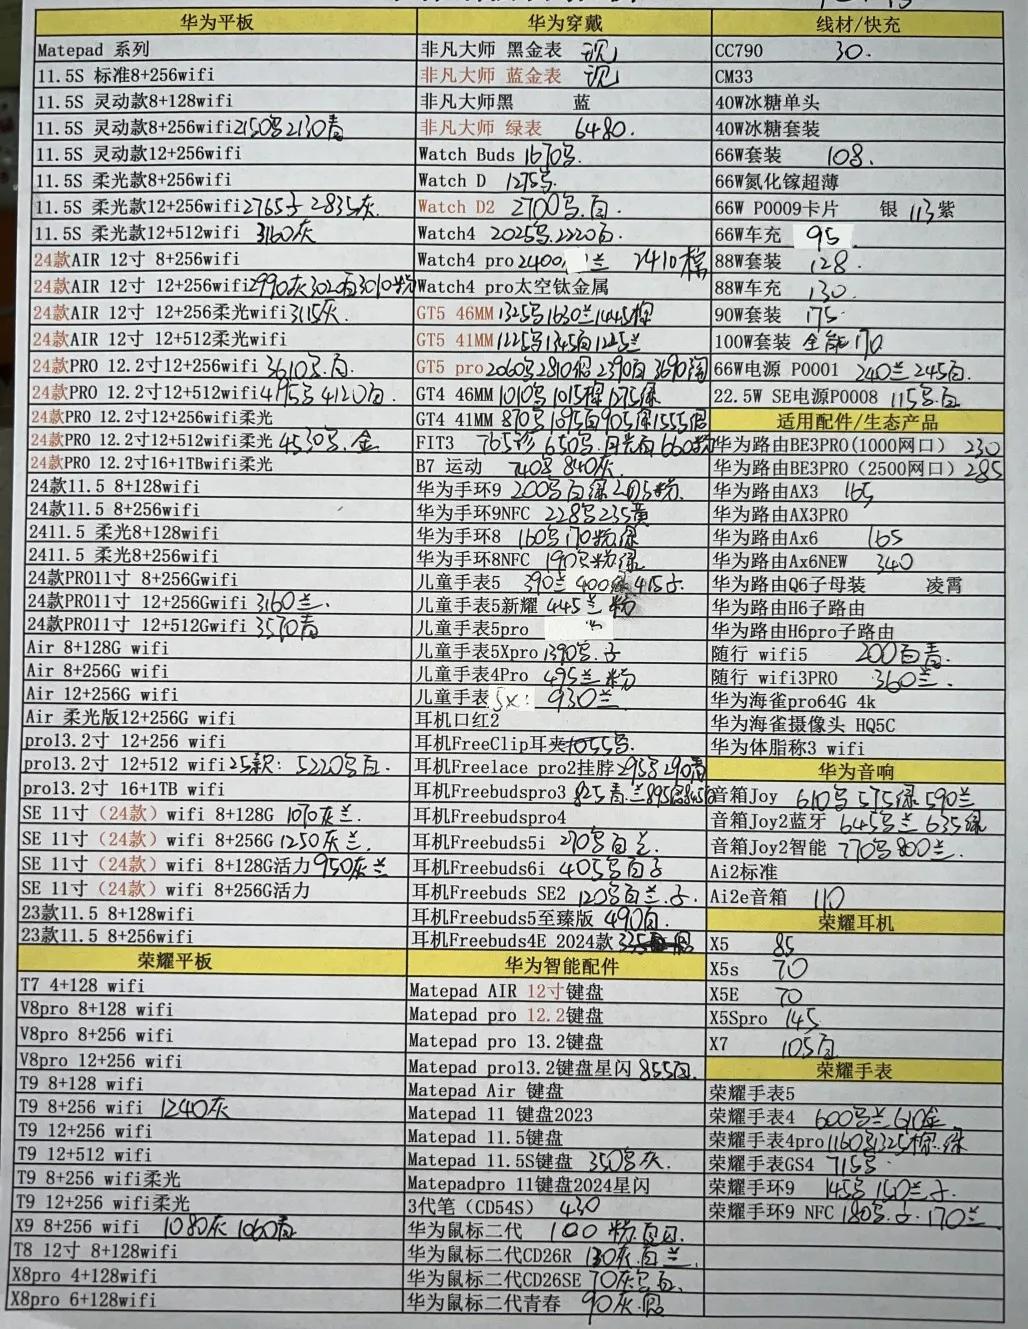 华为平板
Matepad 系列
11.5S 标准8+256wifi
11.5S 灵动款8+128wifi
11.5S 灵动款8+256wifi 2150 2130青
11.5S 灵动款12+256wifi
11.5S 柔光款8+256wifi
11.5S 柔光款12+256wifi 2765 2835灰.
11.5S 柔光款12+512wifi 3160灰
24款AIR 12寸 8+256wifi
24款AIR 12寸 12+256wifi 2990灰 3020白 3010粉
24款AIR 12寸 12+256柔光wifi 3115灰.
24款AIR 12寸 12+512柔光wifi
24款PRO 12.2寸12+256wifi 3610 白
24款PRO 12.2寸12+512wifi 4195 4120白
24款PRO 12.2寸12+256wifi柔光
24款PRO 12.2寸12+512wifi柔光 4530 金
24款PRO 12.2寸16+1TBwifi柔光
24款11.5 8+128wifi
24款11.5 8+256wifi
2411.5 柔光8+128wifi
2411.5 柔光8+256wifi
24款PRO11寸 8+256Gwifi
24款PRO11寸 12+256Gwifi 3160兰.
24款PRO11寸 12+512Gwifi 3570青
Air 8+128G wifi
Air 8+256G wifi
Air 12+256G wifi
Air 柔光版12+256G wifi
pro13.2寸 12+256 wifi
pro13.2寸 12+512 wifi 25款: 5220 白.
pro13.2寸 16+1TB wifi
SE 11寸（24款）wifi 8+128G 1070灰兰.
SE 11寸（24款）wifi 8+256G 1250灰兰.
SE 11寸（24款）wifi 8+128G活力 950灰兰
SE 11寸（24款）wifi 8+256G活力
23款11.5 8+128wifi
23款11.5 8+256wifi
荣耀平板
T7 4+128 wifi
V8pro 8+128 wifi
V8pro 8+256 wifi
V8pro 12+256 wifi
T9 8+128 wifi
T9 8+256 wifi 1240灰
T9 12+256 wifi
T9 12+512 wifi
T9 8+256 wifi柔光
T9 12+256 wifi柔光
X9 8+256 wifi 1080灰 1060青
T8 12寸 8+128wifi
X8pro 4+128wifi
X8pro 6+128wifi
华为穿戴
非凡大师 黑金表 议
非凡大师 蓝金表 议
非凡大师黑 蓝
非凡大师 绿表 6480.
Watch Buds 1670
Watch D 1275
Watch D2 2700 白.
Watch4 2025 2220白.
Watch4 pro 2400 兰 2410棕
Watch4 pro太空钛金属
GT5 46MM 1325 1630兰 1445棕
GT5 41MM 1225 1345白 1225兰
GT5 pro 2060 2810 2390白 3690陶
GT4 46MM 1010 1015棕 1275绿
GT4 41MM 870 1095白 905绿 1555银
FIT3 765 650 月光白 660粉
B7 运动 740 840灰.
华为手环9 200 白绿 205粉.
华为手环9NFC 228 235黄
华为手环8 160 170粉绿
华为手环8NFC 190 粉绿
儿童手表5 390兰 400 415
儿童手表5新耀 445兰 粉
儿童手表5pro
儿童手表5Xpro 1390
儿童手表4Pro 495兰 粉
儿童手表 5x: 930兰
耳机口红2
耳机FreeClip耳夹 1055
耳机Freelace pro2挂脖 295 290青
耳机Freebudspro3 825青 兰895银
耳机Freebudspro4
耳机Freebuds5i 270 白兰
耳机Freebuds6i 405 白
耳机Freebuds SE2 120 白兰
耳机Freebuds5至臻版 490白.
耳机Freebuds4E 2024款 335
华为智能配件
Matepad AIR 12寸键盘
Matepad pro 12.2键盘
Matepad pro 13.2键盘
Matepad pro13.2键盘星闪 855白.
Matepad Air 键盘
Matepad 11 键盘2023
Matepad 11.5键盘
Matepad 11.5S键盘 350 灰.
Matepadpro 11键盘2024星闪
3代笔（CD54S） 430
华为鼠标二代 100 粉白
华为鼠标二代CD26R 130灰.白兰
华为鼠标二代CD26SE 70灰 白.
华为鼠标二代青春 90灰.银
线材/快充
CC790 30.
CM33
40W冰糖单头
40W冰糖套装
66W套装 108.
66W氮化镓超薄
66W P0009卡片 银 113紫
66W车充 95
88W套装 128.
88W车充 130.
90W套装 175.
100W套装 全能170
66W电源 P0001 240兰 245白.
22.5W SE电源P0008 115 白
适用配件/生态产品
华为路由BE3PRO(1000网口) 230
华为路由BE3PRO（2500网口）285
华为路由AX3 165
华为路由AX3PRO
华为路由Ax6 165
华为路由Ax6NEW 340
华为路由Q6子母装 凌霄
华为路由H6子路由
华为路由H6pro子路由
随行 wifi5 200白青.
随行 wifi3PRO 360兰.
华为海雀pro64G 4k
华为海雀摄像头 HQ5C
华为体脂称3 wifi
华为音响
音箱Joy 610 575绿 590兰
音箱Joy2蓝牙 645 兰 635绿
音箱Joy2智能 770 800兰.
Ai2标准
Ai2e音箱 110
荣耀耳机
X5 85
X5s 70
X5E 70
X5Spro 145
X7 105白
荣耀手表
荣耀手表5
荣耀手表4 600 兰 610金
荣耀手表4pro 1160 1325棕.绿
荣耀手表GS4 715
荣耀手环9 145 150兰
荣耀手环9 NFC 180 170兰